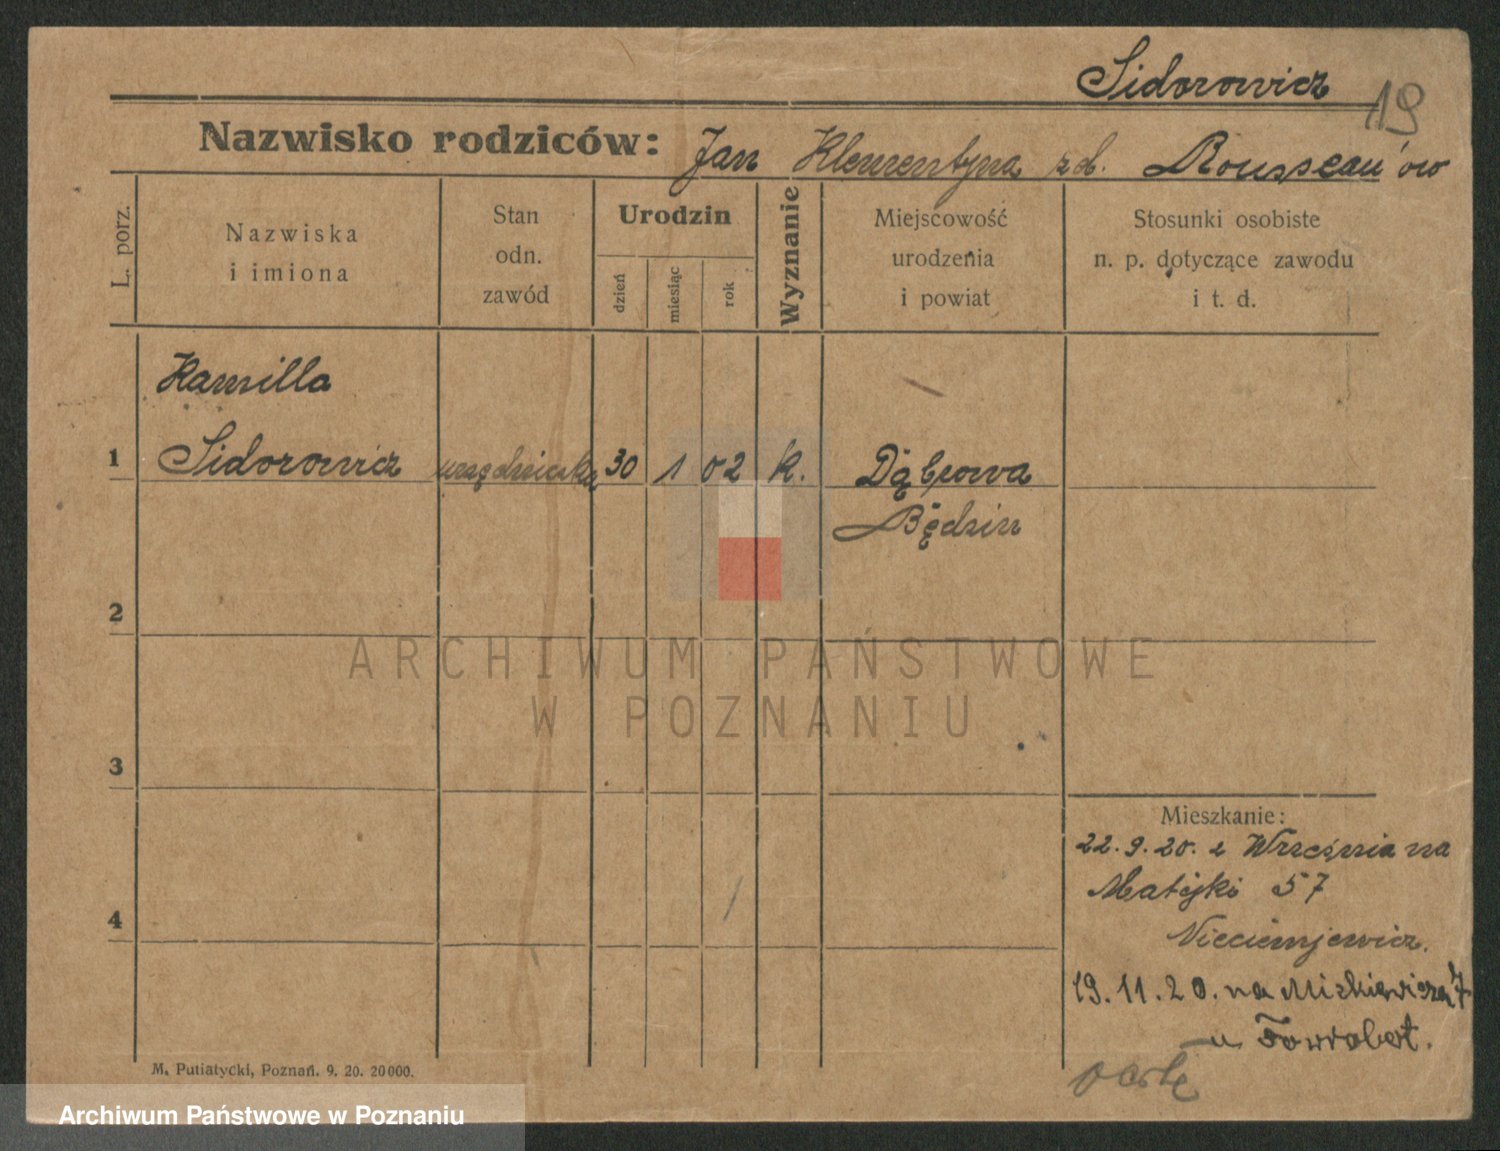 Sidorowicz
19
Nazwisko rodziców: Jan Klementyna zd. Rousseau'ów
L. porz.
Nazwiska
i imiona
Stan
odn.
zawód
Urodzin
dzień
miesiąc
rok
Wyznanie
Miejscowość
urodzenia
i powiat
Stosunki osobiste
n. p. dotyczące zawodu
i t. d.
Kamilla
1 Sidorowicz urzędniczka 30 1 02 k. Dąbrowa
Będzin
2
ARCHIWUM PAŃSTWOWE
W POZNANIU
3
Mieszkanie:
22.9.20. z Września na
Matejki 57
4
19.11.20. na Mickiewicza 7
u
M. Putiatycki, Poznań. 9. 20. 20000.
Archiwum Państwowe w Poznaniu